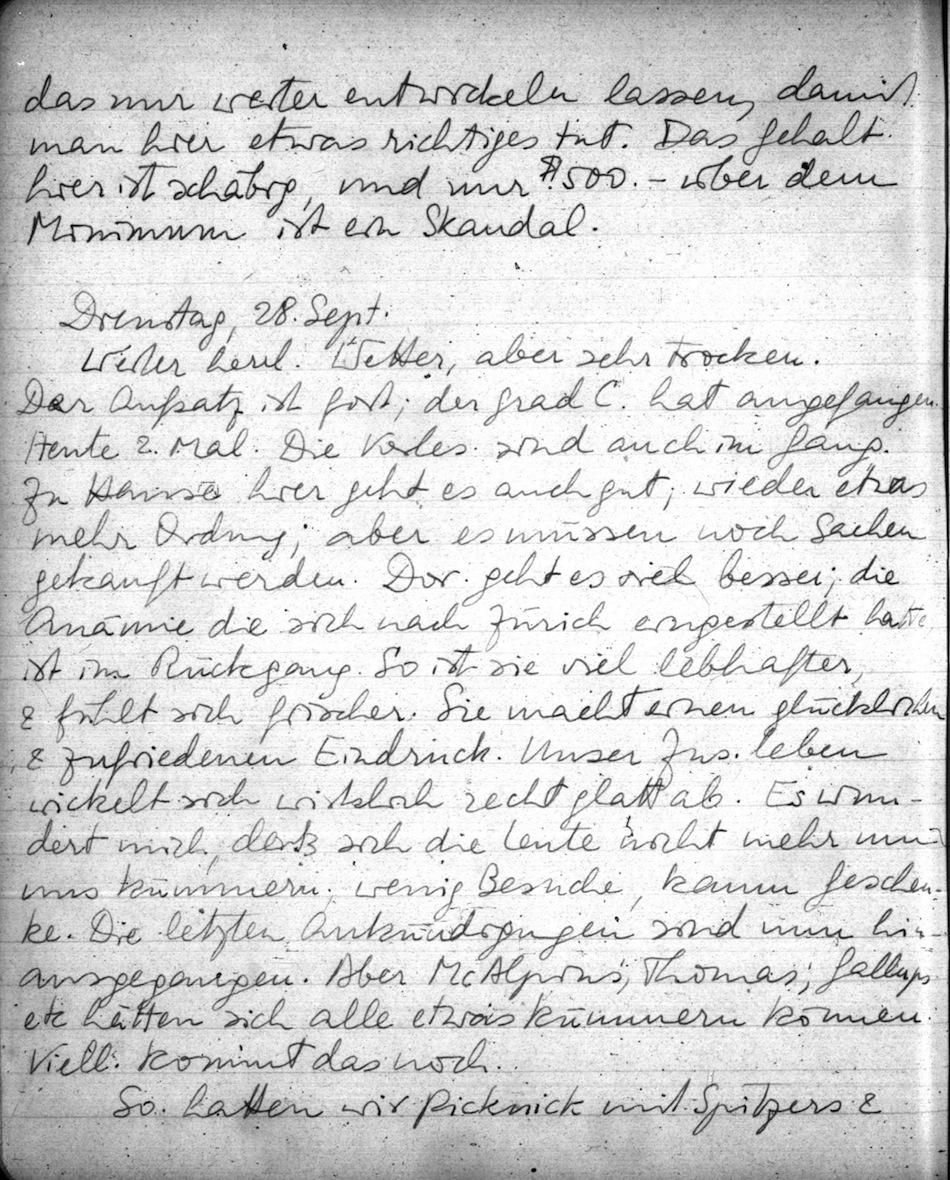 das nur weiter entwickeln lassen, damit
man hier etwas richtiges tut. Das Gehalt
hier ist schäbig, und nur $500.– über dem
Minimum ist ein Skandal.
Dienstag, 28. Sept.
Weiter herrl. Wetter, aber sehr trocken.
Der Aufsatz ist fort; der grad C. hat angefangen.
Heute 2. Mal. Die Vorles. sind auch im Gang.
Zu Hause hier geht es auch gut; wieder etwas
mehr Ordnung; aber es müssen noch Sachen
gekauft werden. Dor. geht es viel besser; die
Anämie die sich nach Zürich eingestellt hatte,
ist im Rückgang. So ist sie viel lebhafter,
& fühlt sich frischer. Sie macht einen glücklichen
& zufriedenen Eindruck. Unser Zus.leben
wickelt sich wirklich recht glatt ab. Es wun-
dert mich, daß sich die Leute nicht mehr um
uns kümmern; wenig Besuche, kaum Geschen-
ke. Die letzten Ankündigungen sind nun hin-
ausgegangen. Aber McAlpins, Thomas', Gallups
etc hätten sich alle etwas kümmern können.
Viell. kommt das noch.
So. hatten wir Picknick mit Spitzers &